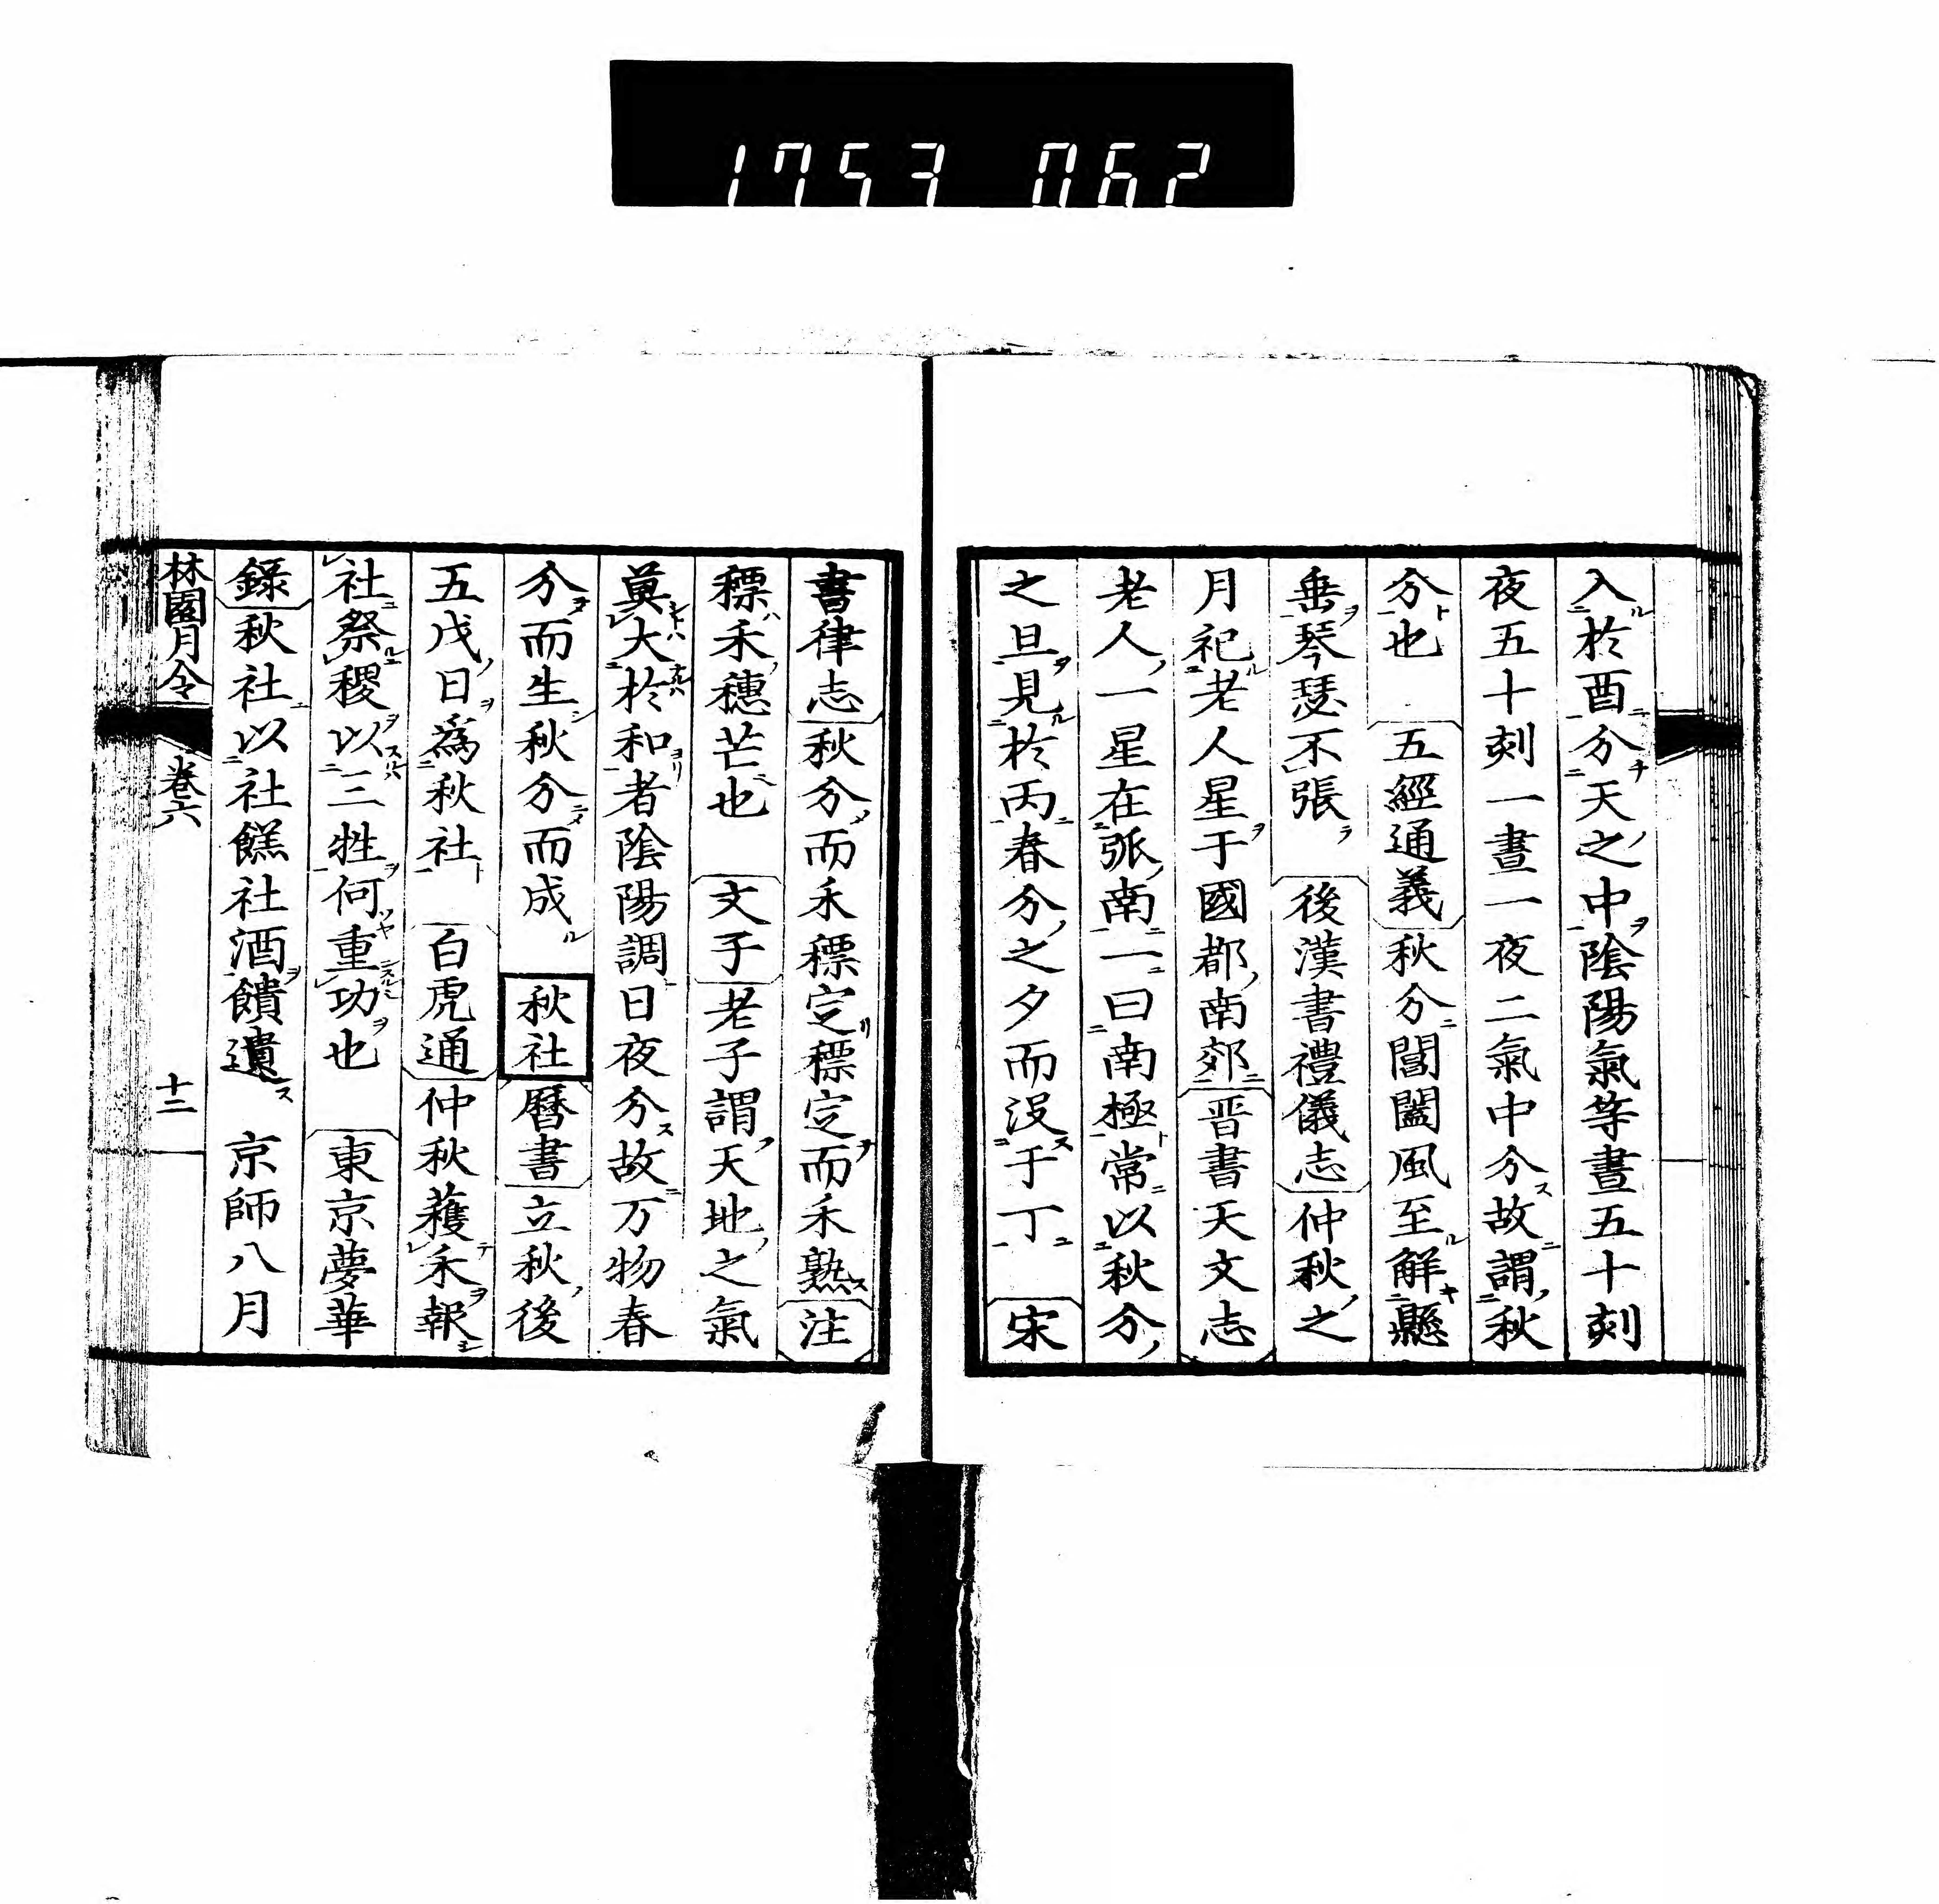 1753 062
入於酉分天之中陰陽氣等晝五十刻
夜五十刻一晝一夜二氣中分故謂秋
分也 五經通義秋分閶闔風至解懸
垂琴瑟不張 後漢書禮儀志仲秋之
月祀老人星于國都南郊晋書天文志
老人一星在弧南一曰南極常以秋分
之旦見於丙春分之夕而没于丁 宋
書律志秋分而禾穮定穮定而禾熟注
穮禾穗芒也 文子老子謂天地之氣
莫大於和者陰陽調日夜分故万物春
分而生秋分而成 秋社暦書立秋後
五戊日爲秋社 白虎通仲秋蘀禾報
社祭稷以三牲何重功也 東京夢華
錄秋社以社餻社酒饋遺 京師八月
林園月令 卷六 十二